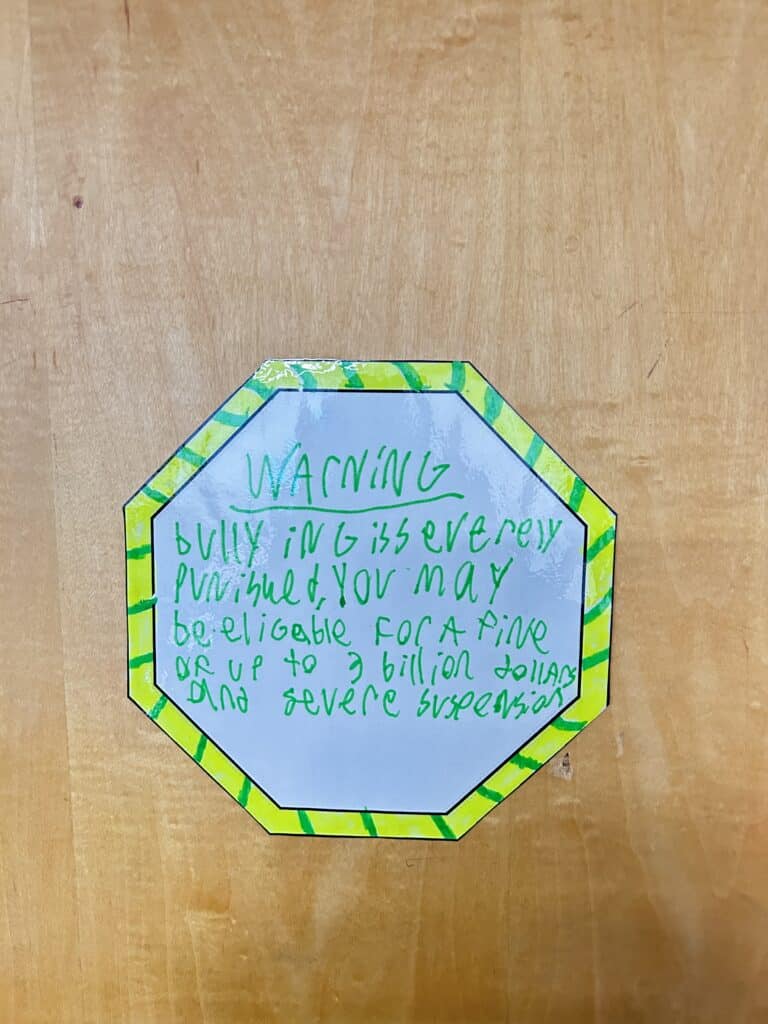 WArNiNG
bully iNG is severely
PuNished, you may
be eligable for A fine
of up to 3 billion dollars
and severe suspension